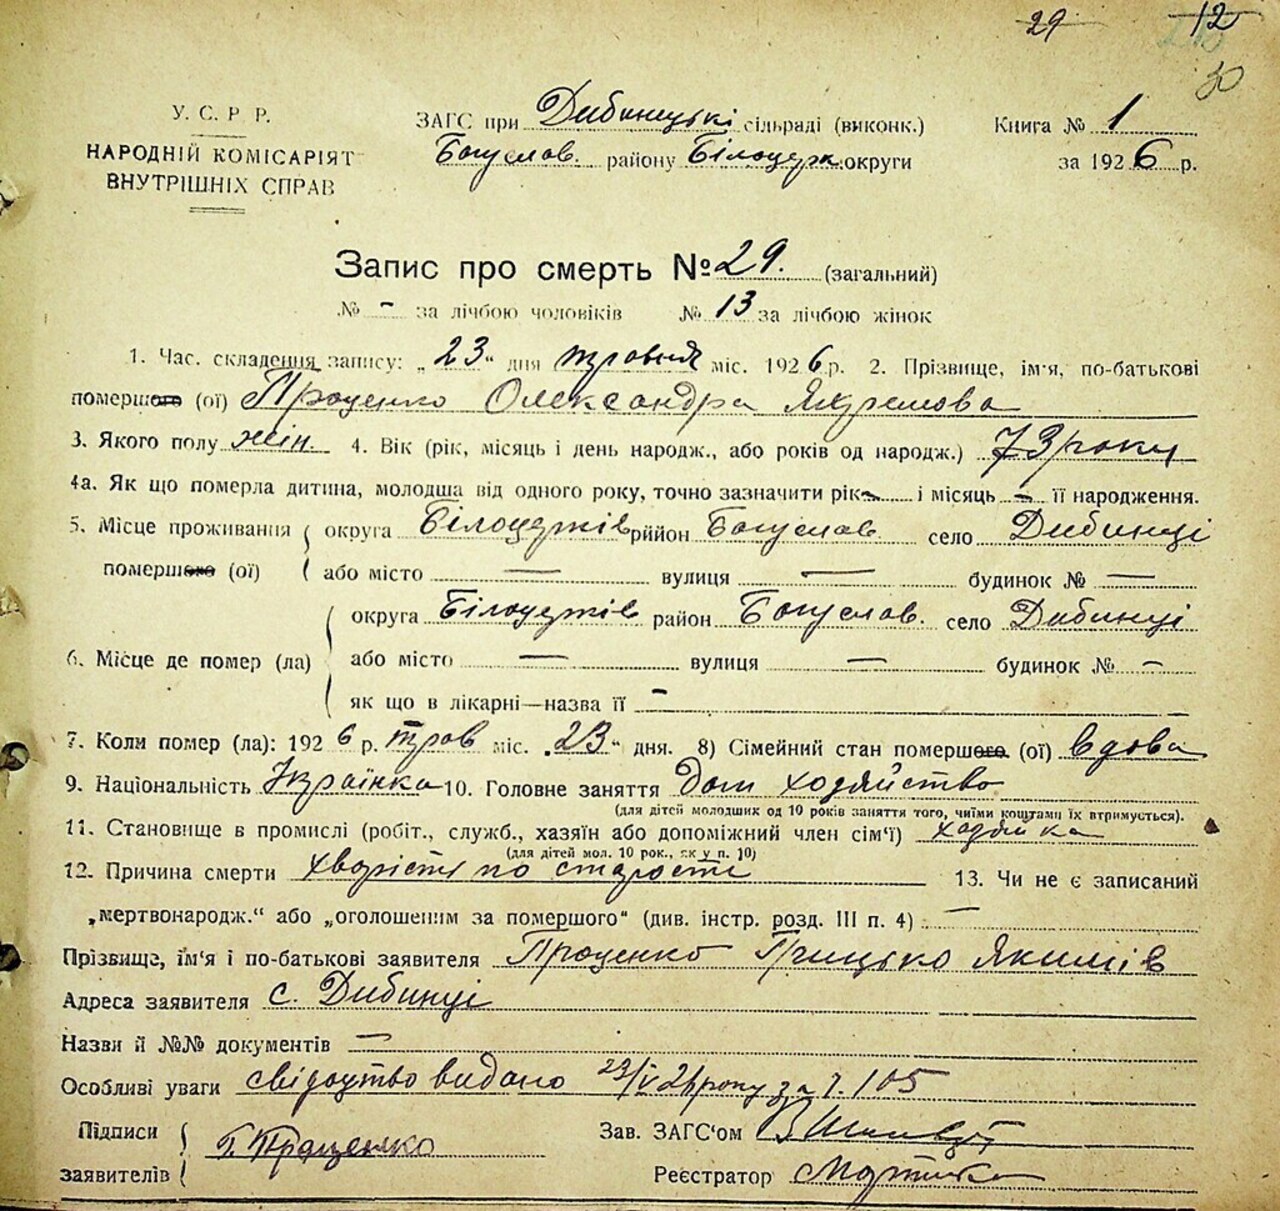 29 12
30
У. С. Р. Р.
НАРОДНІЙ КОМІСАРІЯТ
ВНУТРІШНІХ СПРАВ
ЗАГС при Дибинецькі сільраді (виконк.)
Богуслав. району Білоцерк. округи
Книга № 1
за 1926 р.
Запис про смерть № 29. (загальний)
№ - за лічбою чоловіків № 13 за лічбою жінок
1. Час. складення запису: „23“ дня травня міс. 1926 р. 2. Прізвище, ім'я, по-батькові
помершого (ої) Проценко Олександра
3. Якого полу жін. 4. Вік (рік, місяць і день народж., або років од народж.) 73 роки
4а. Як що померла дитина, молодша від одного року, точно зазначити рік - і місяць - її народження.
5. Місце проживання помершого (ої)
округа Білоцерків рийон Богуслав село Дибинці
або місто — вулиця — будинок № —
6. Місце де помер (ла)
округа Білоцерків район Богуслав. село Дибинці
або місто — вулиця — будинок № —
як що в лікарні—назва її -
7. Коли помер (ла): 1926 р. трав міс. „23“ дня. 8) Сімейний стан помершого (ої) вдова
9. Національність Українка 10. Головне заняття Дом ходяйство
(для дітей молодших од 10 років заняття того, чиїми коштами їх втримується).
11. Становище в промислі (робіт., служб., хазяїн або допоміжний член сім'ї) ходяйка
(для дітей мол. 10 рок., як у п. 10)
12. Причина смерти хворість по старости 13. Чи не є записаний
„мертвонародж.“ або „оголошеним за помершого“ (див. інстр. розд. III п. 4) : —
Прізвище, ім'я і по-батькові заявителя Проценко Грицько Якимів
Адреса заявителя с. Дибинці
Назви й №№ документів —
Особліві уваги свідоцтво видано 23/V 26 року за № 105
Підписи заявителів Г. Проценко
Зав. ЗАГС'ом
Реєстратор